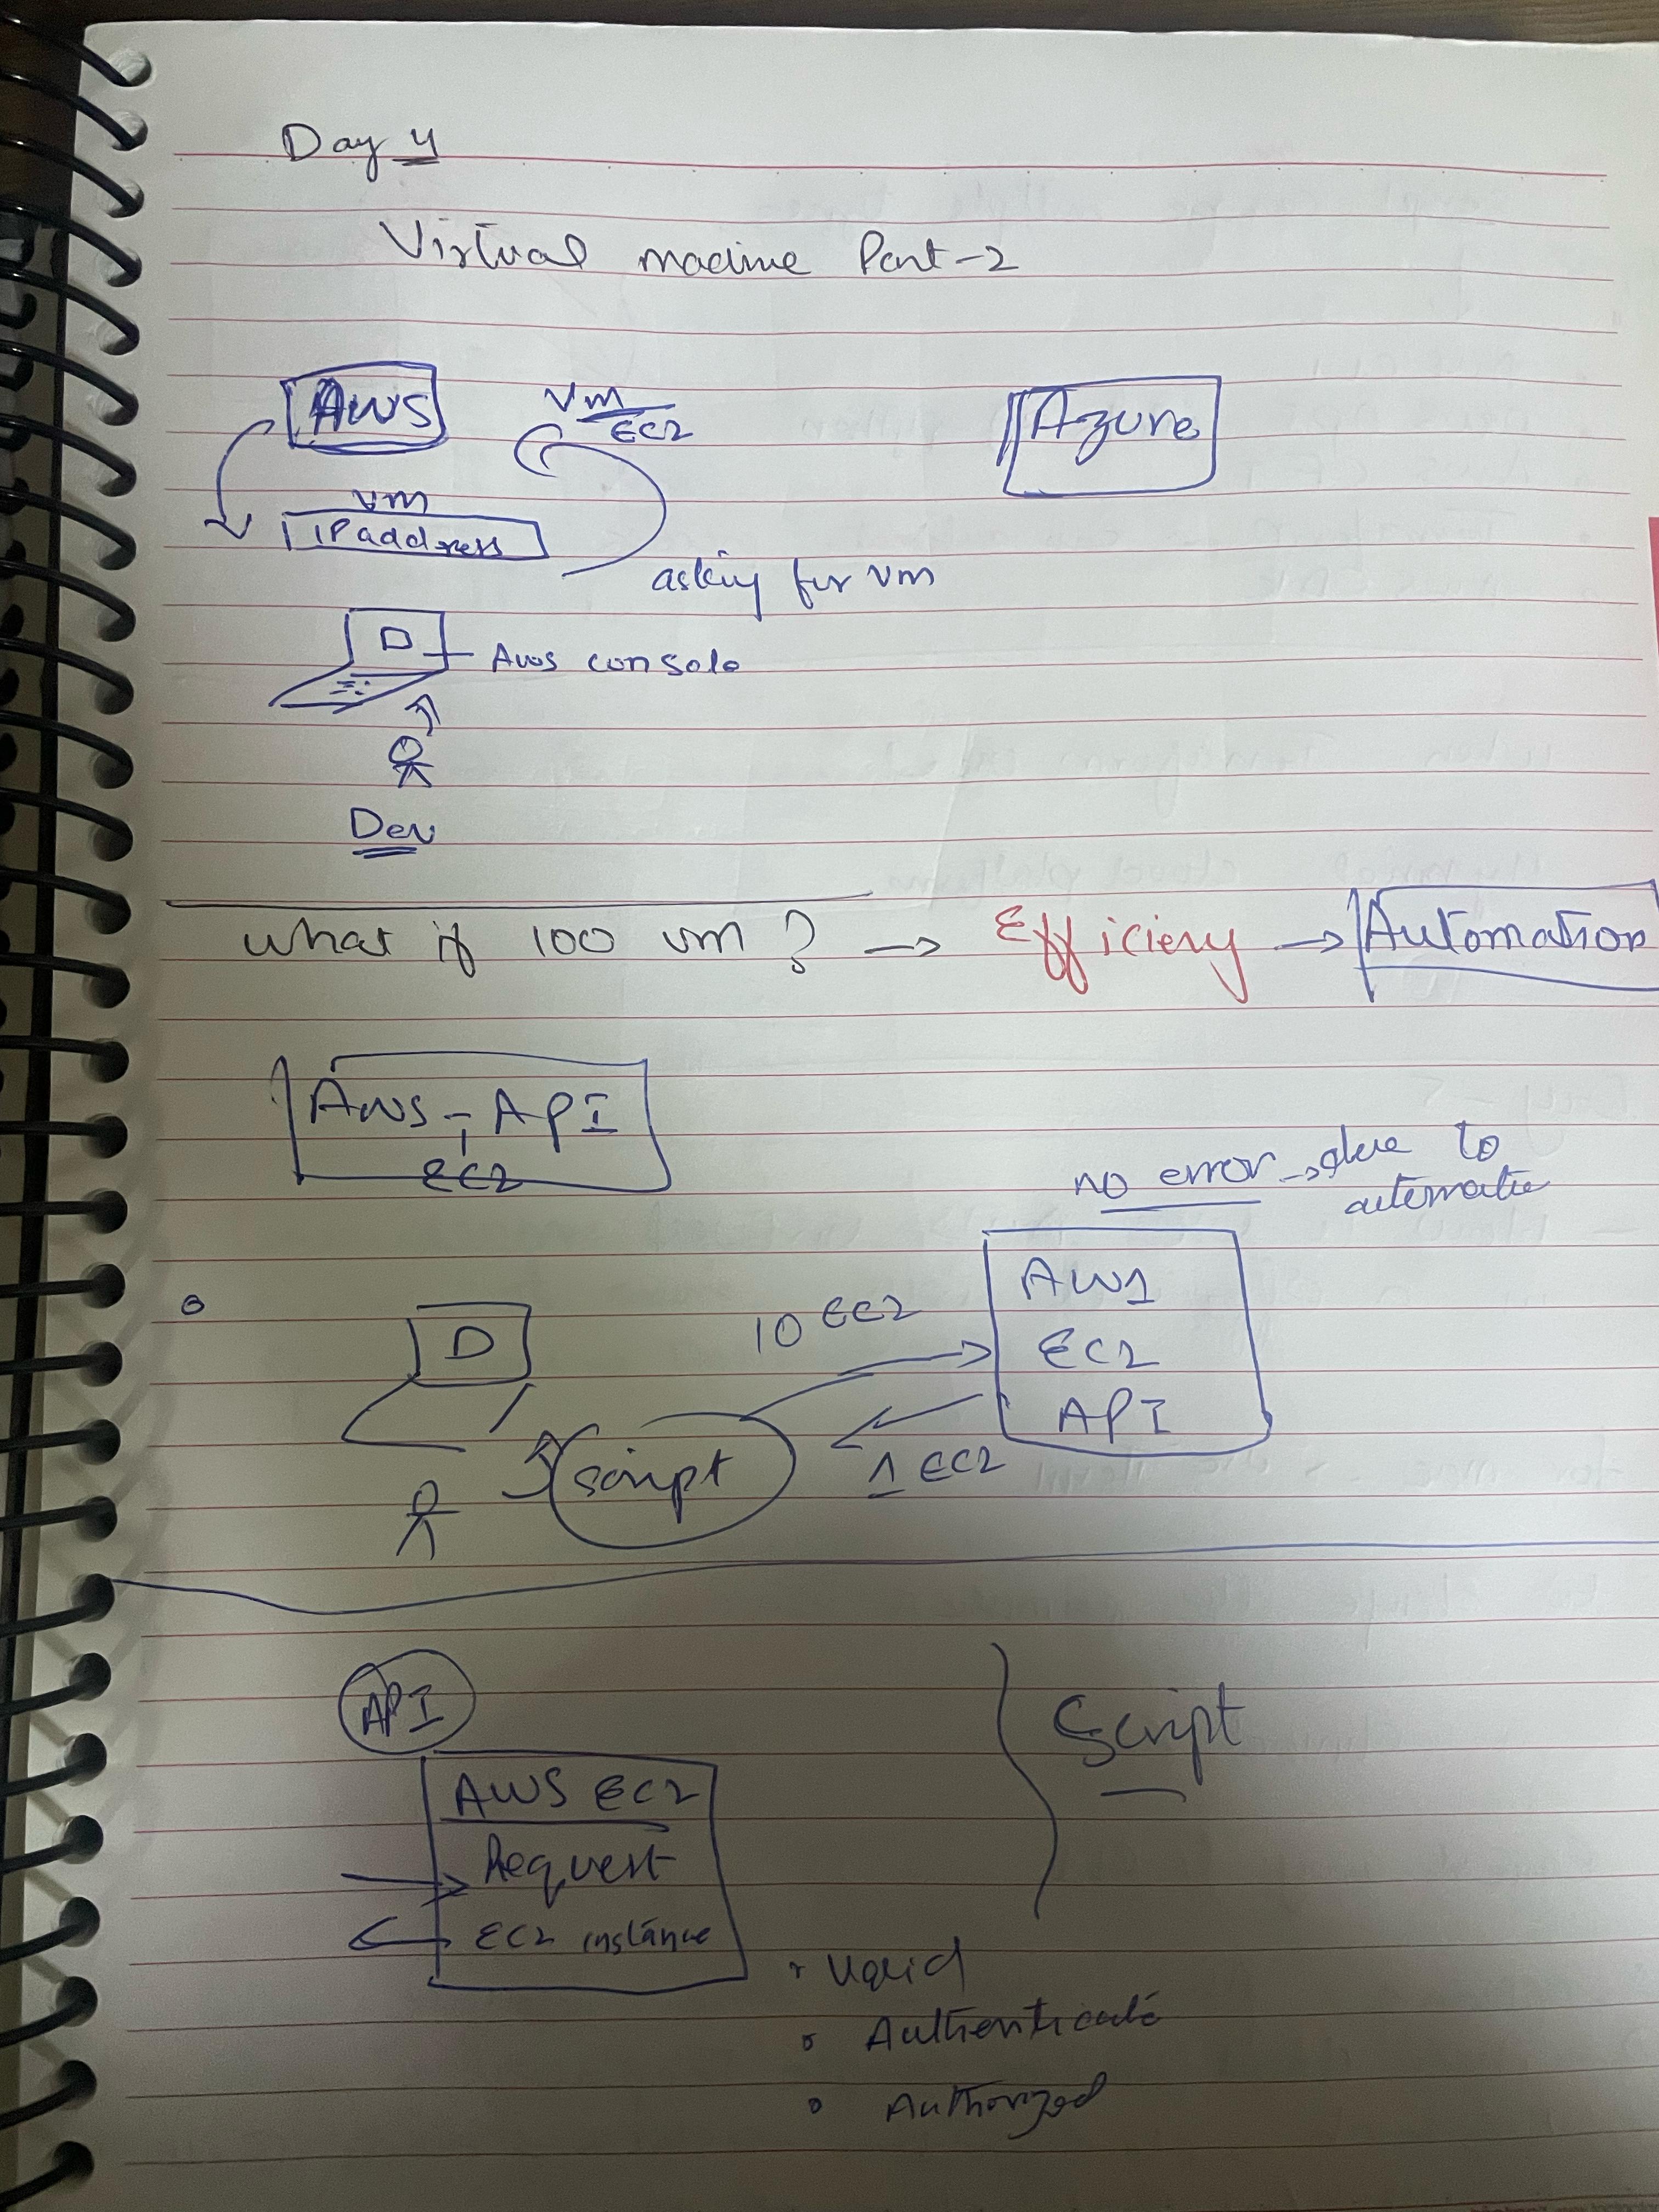 Day 4
Virtual machine Part-2
AWS
VM
EC2
Azure
VM
IP address
asking for VM
D
Aws console
Dev
what if 100 vm ? → Efficieny → Automation
AWS - API
EC2
no error → due to
automatic
AWS
EC2
API
D
10 EC2
1 EC2
script
API
Script
AWS EC2
Request
EC2 instance
• Valid
• Authenticate
• Authorized